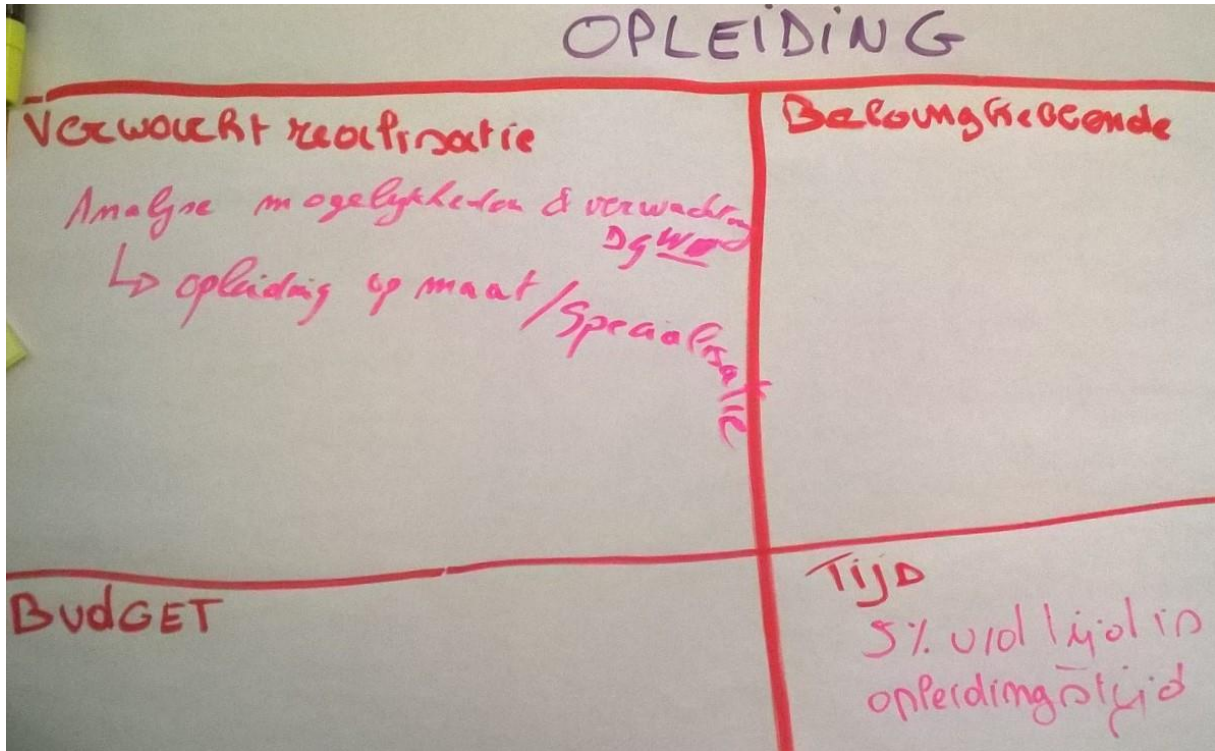 OPLEIDING
Verwacht realisatie
Analyse mogelykheden & verwachting
DG
↳ opleiding op maat/Specialisatie
Belanghebbende
BUDGET
TIJD
5% v/d tijd is
opleidingstijd